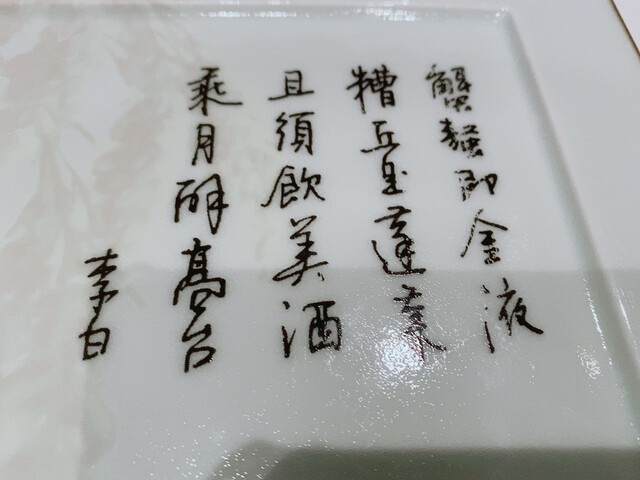 蟹螯即金液
糟丘是蓬莱
且須飲美酒
乘月醉高台
李白